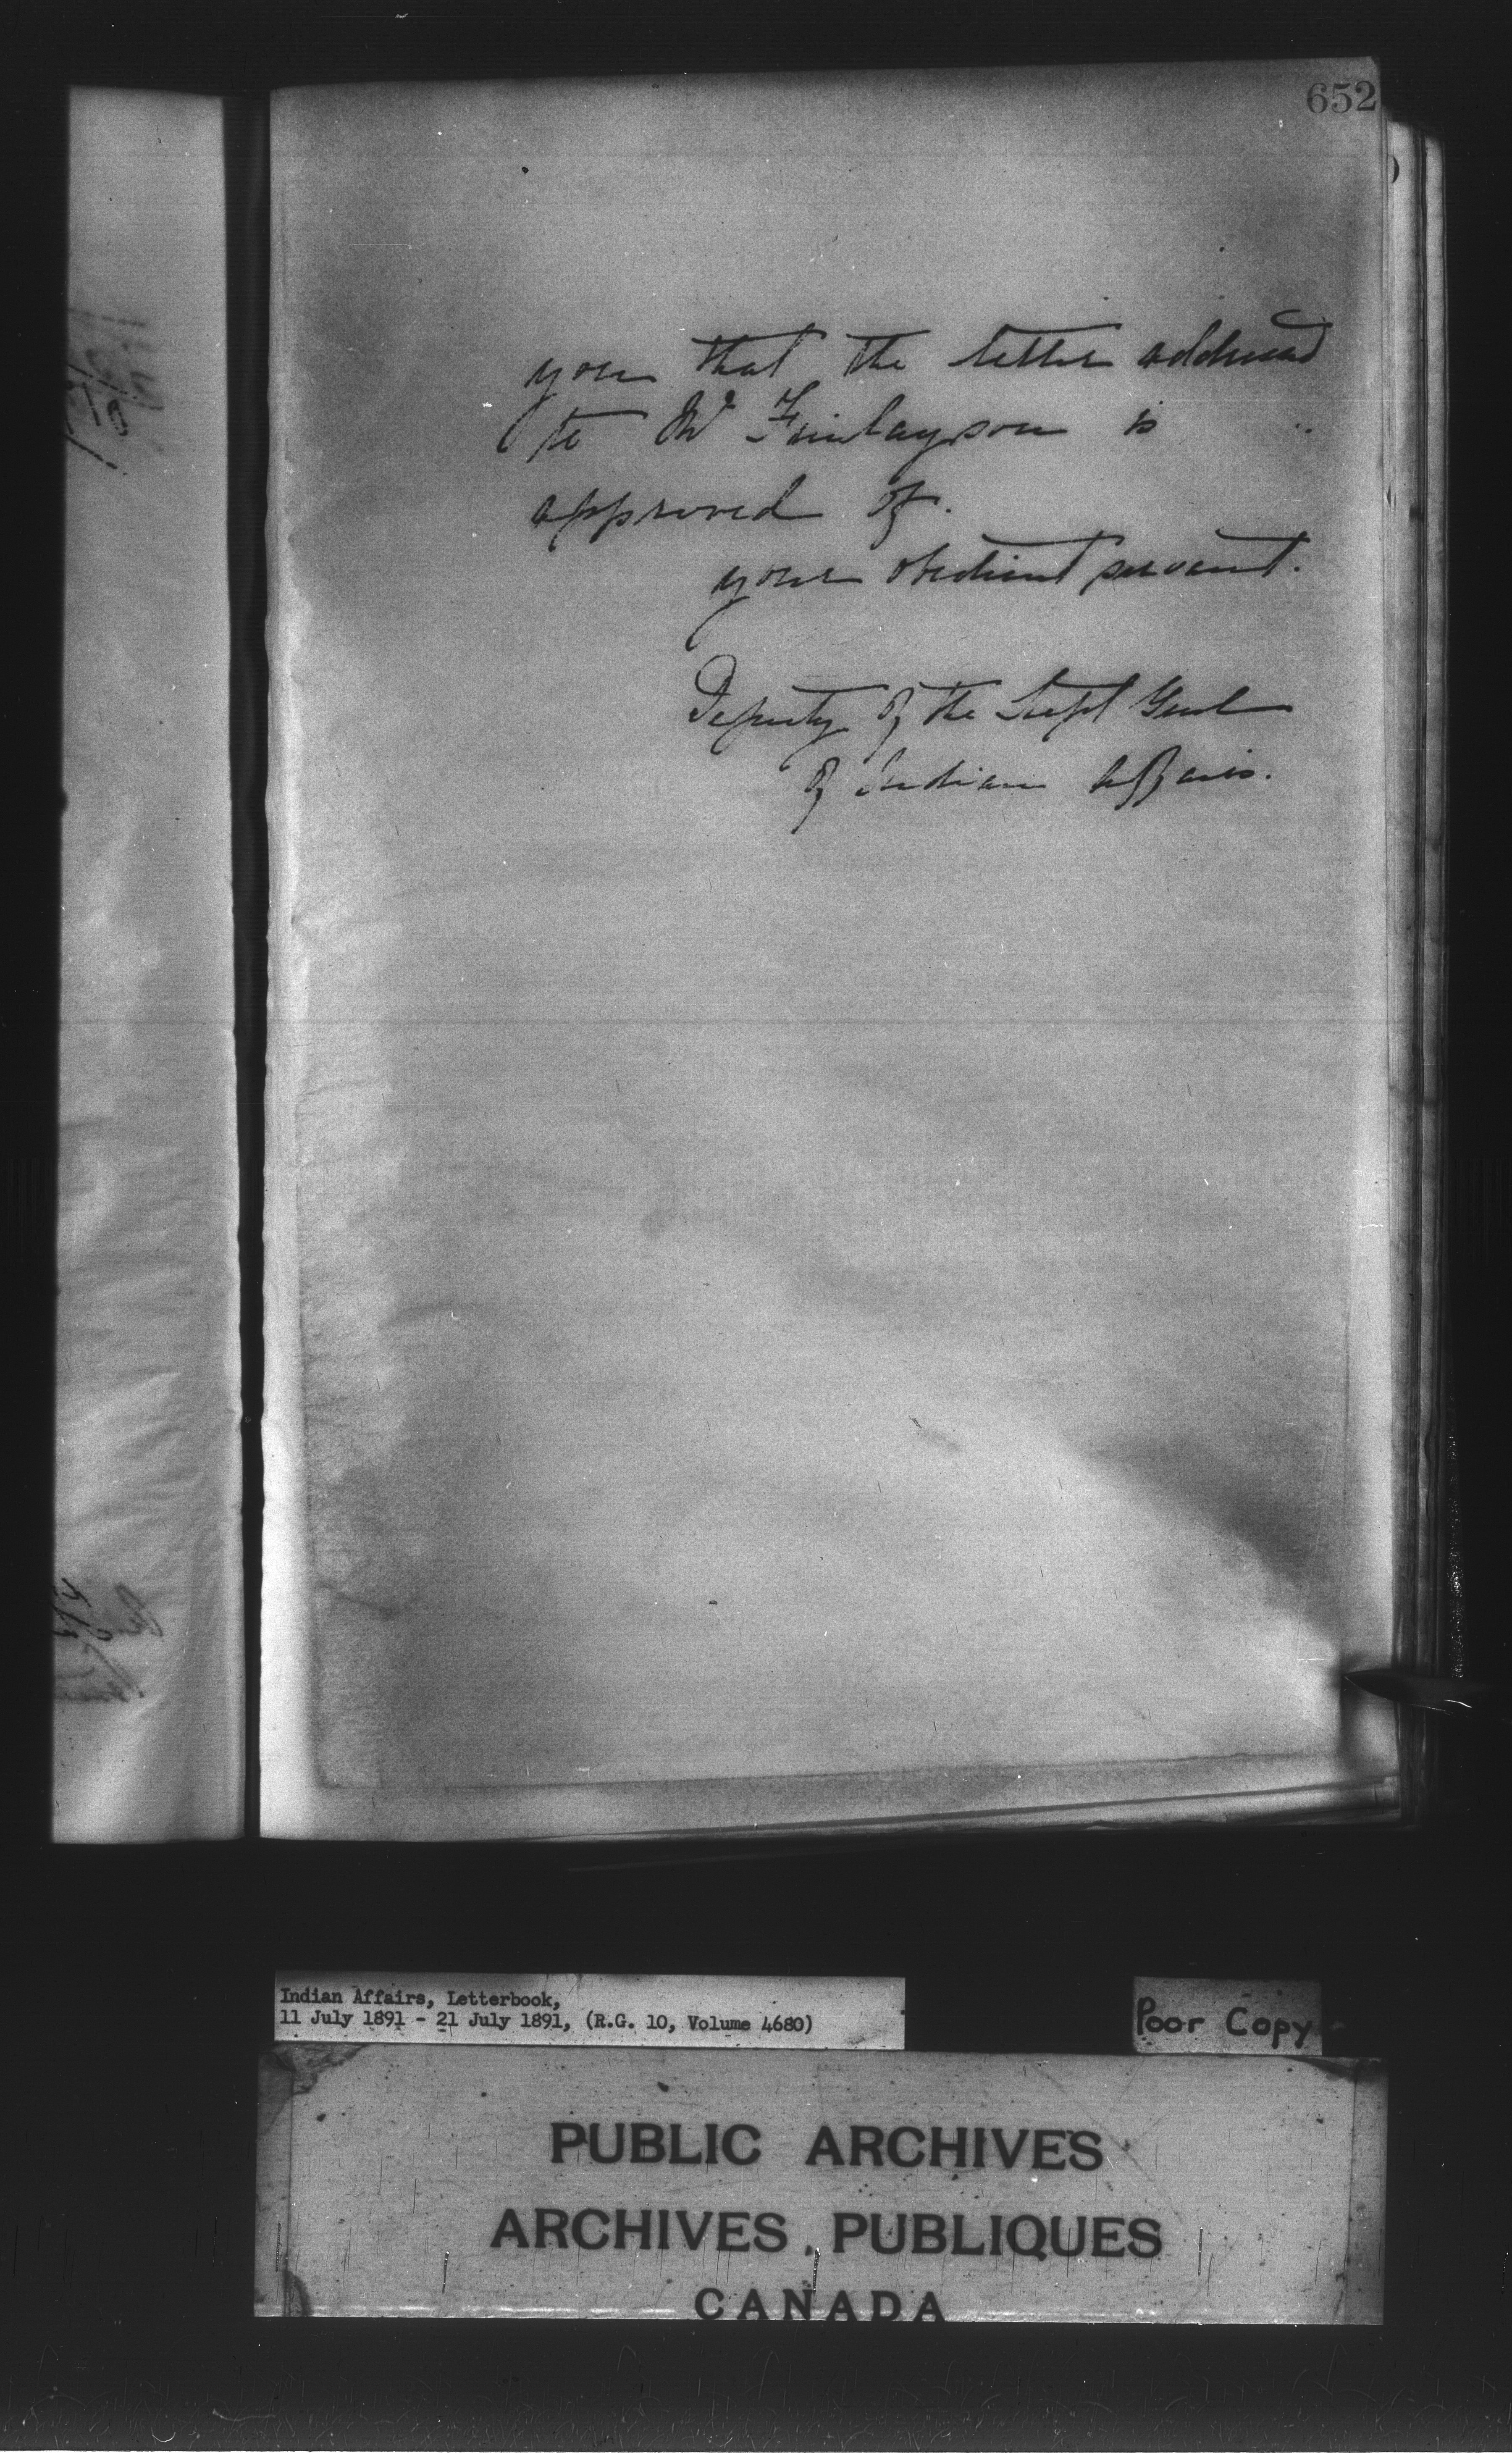 652
you that the letter addressed
to Mr Finlayson is
approved of.
your obedient servant.
Deputy of the Supt Genl
of Indian Affairs.
Indian Affairs, Letterbook,
11 July 1891 - 21 July 1891, (R.G. 10, Volume 4680)
Poor Copy
PUBLIC ARCHIVES
ARCHIVES PUBLIQUES
CANADA